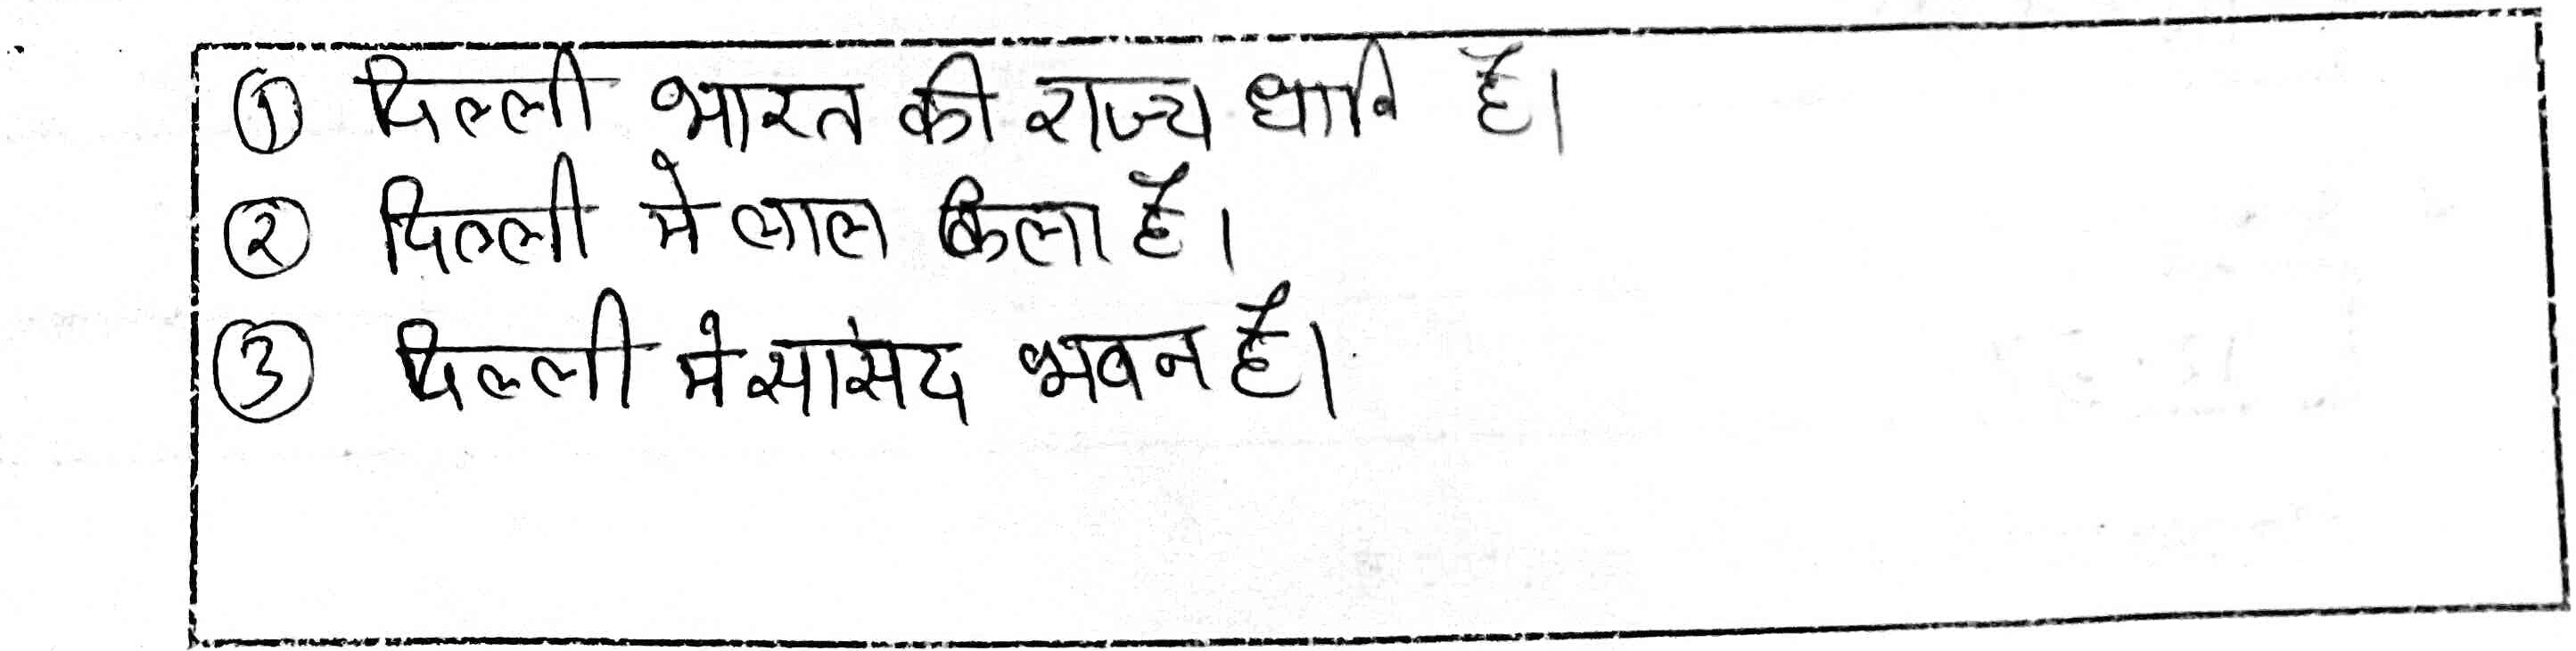 ① दिल्ली भारत की राज्य धानि है।
② दिल्ली मे लाल किला है।
③ दिल्ली मे सांसद भवन है।